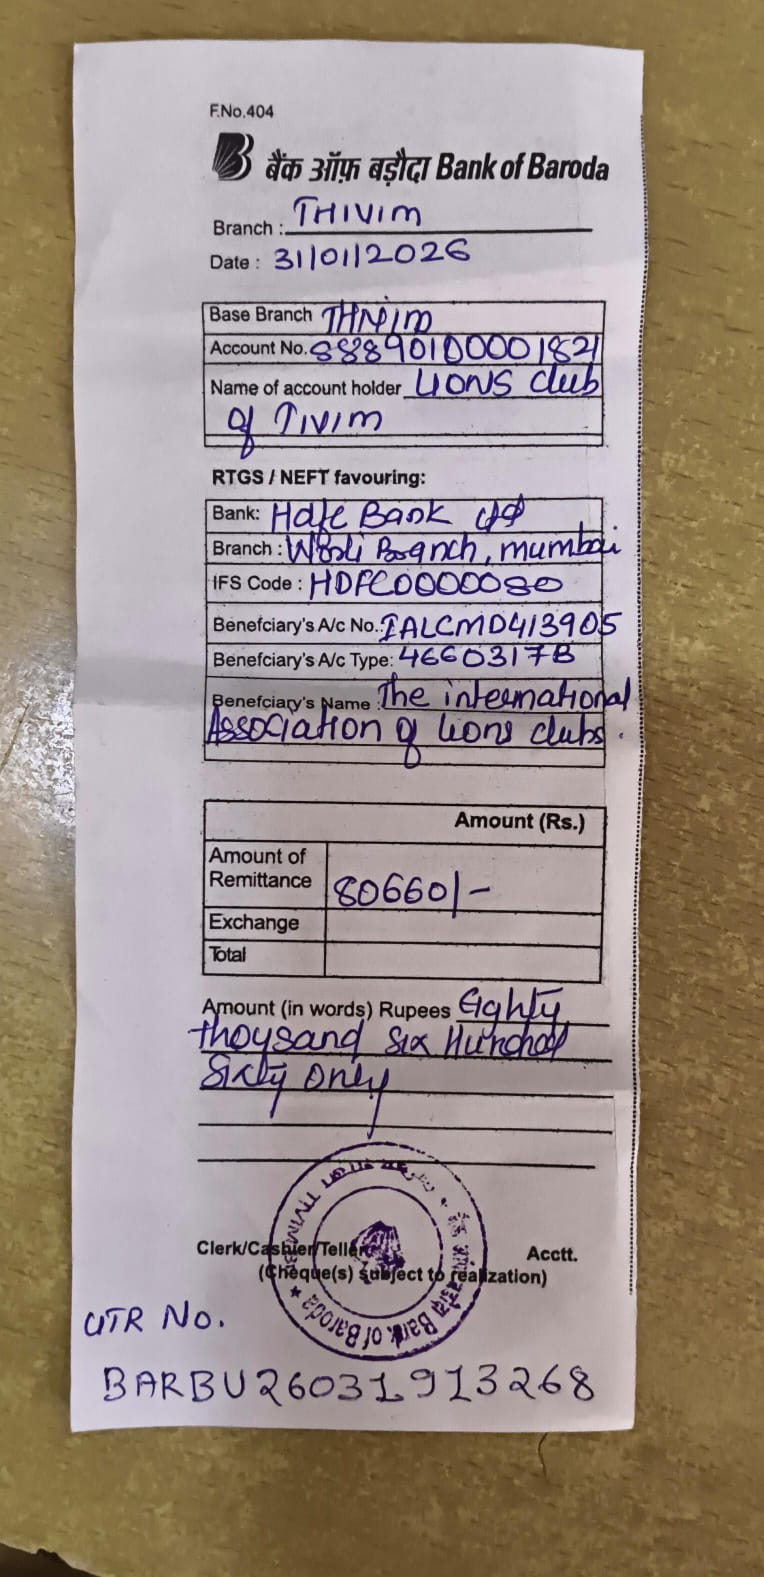 F.No.404
बैंक ऑफ़ बड़ौदा Bank of Baroda
Branch : THIVIM
Date : 31/01/2026
Base Branch THIVIM
Account No. 88890100001821
Name of account holder LIONS club
of TIVIM
RTGS / NEFT favouring:
Bank: Hdfc Bank Ltd
Branch : Worli Branch, mumbai
IFS Code : HDFC0000080
Benefciary's A/c No.: IALCMD413905
Benefciary's A/c Type: 4660317B
Benefciary's Name : The international
Association of lions clubs.
Amount (Rs.)
Amount of
Remittance 80660/-
Exchange
Total
Amount (in words) Rupees Eighty
thousand six Hundred
Sixty only
Clerk/Cashier/Teller Acctt.
(Cheque(s) subject to realization)
Bank of Baroda
UTR No.
BARBU26031913268